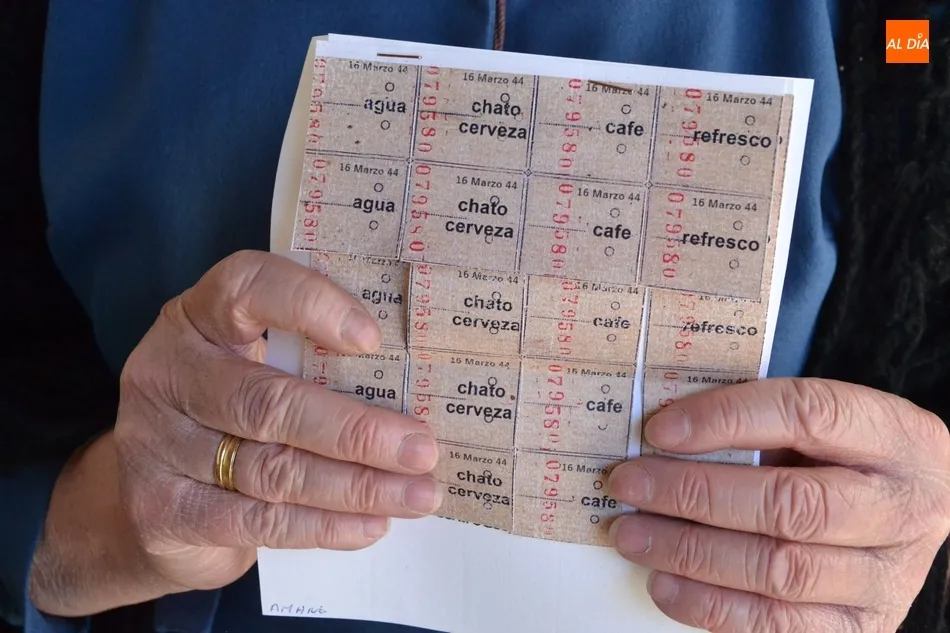 AL DÍA
16 Marzo 44
agua
079580
16 Marzo 44
chato
cerveza
079580
16 Marzo 44
cafe
079580
16 Marzo 44
refresco
079580
16 Marzo 44
agua
079580
16 Marzo 44
chato
cerveza
079580
16 Marzo 44
cafe
079580
16 Marzo 44
refresco
agua
079580
16 Marzo 44
chato
cerveza
079580
16 Marzo 44
cafe
refresco
agua
16 Marzo 44
chato
cerveza
079580
16 Marzo 44
cafe
16 Marzo 44
16 Marzo 44
chato
cerveza
079580
16 Marzo 44
cafe